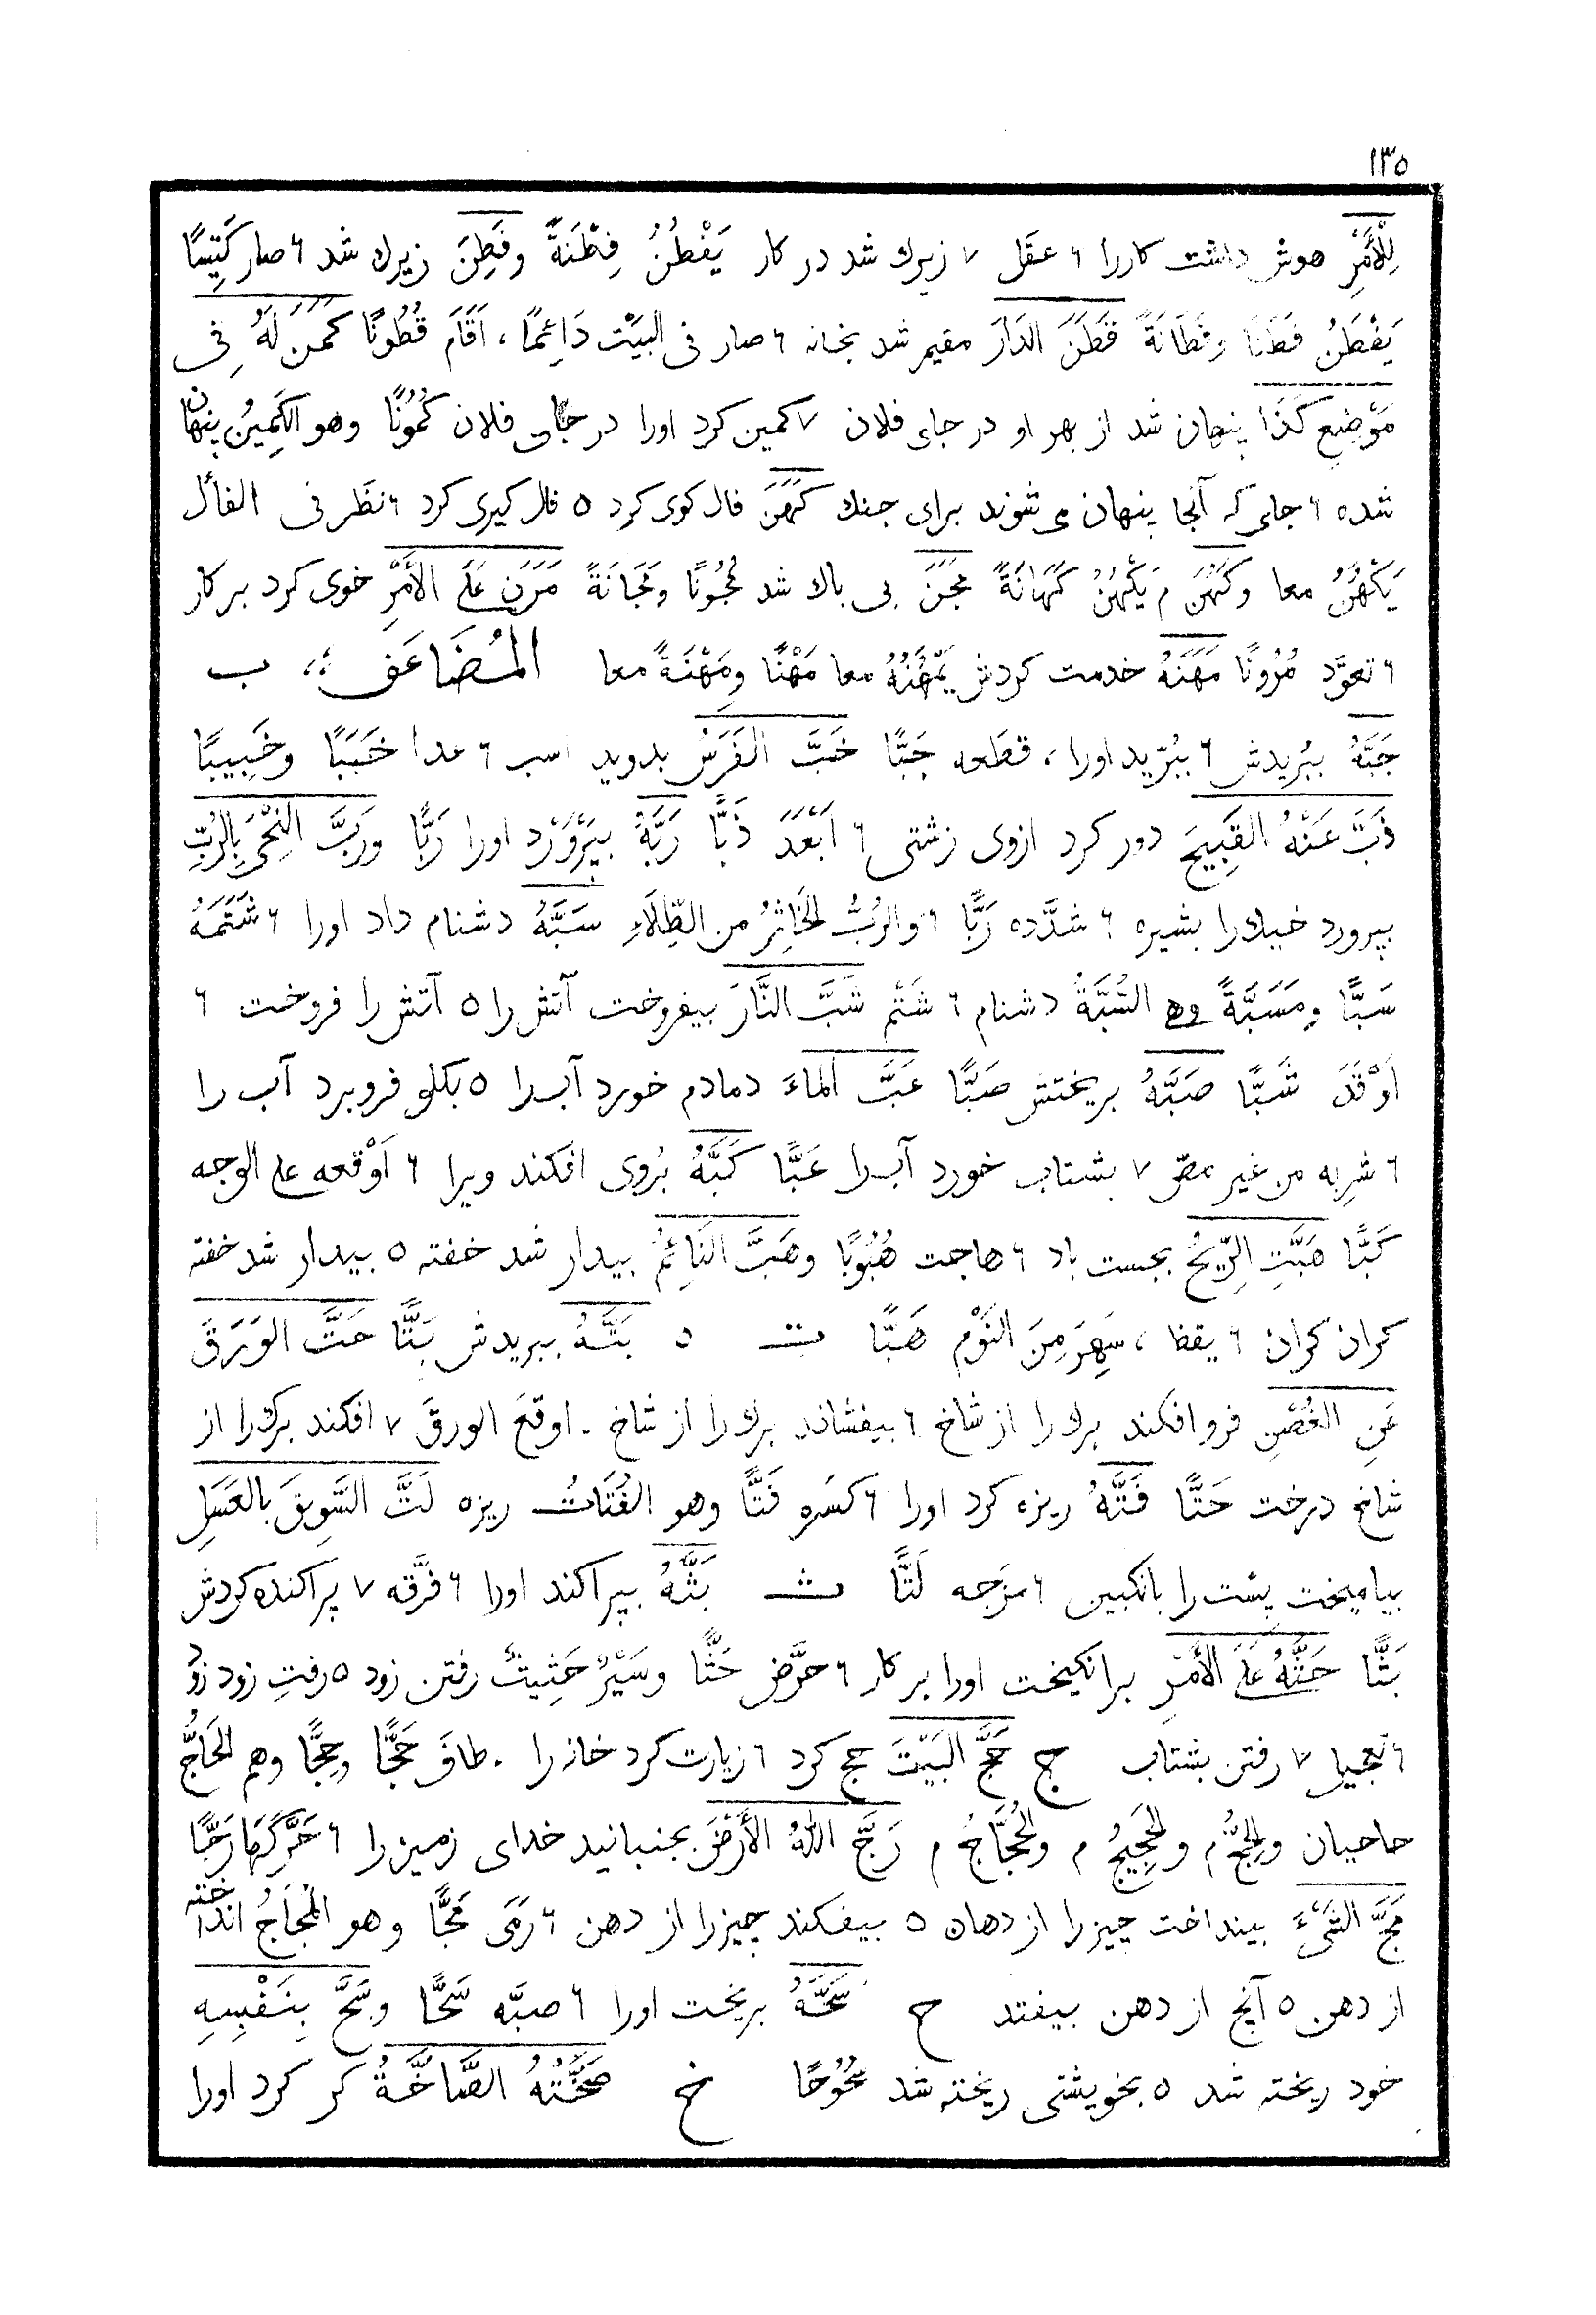 ١٣٥
لِلْأَمْرِ هوش داشت كاررا ٦ عقَل ٧ زيرك شد در كار يَفْطُنُ فِطْنَةً وفَطِنَ زيرك شد ٦ صار كَيِّسًا
يَفْطَنُ فَطَنًا وفَطَانَةً قَطَنَ الدَارَ مقيم شد بخانه ٦ صار فى البَيْت دَائِمًا ، اَقَامَ قُطُونًا كَمَنَ لَهُ فِى
مَوْضِعِ كَذَا پنهان شد از بهر او در جاى فلان ٧ كمين كرد اورا در جاى فلان كُمُونًا وهو الكَمِينُ پنهان
شده ٦ جاى كه آنجا پنهان مى شوند براى جنك كَهَنَ فال كوى كرد ٥ فال كيرى كرد ٦ نظَر فى الفأل
يَكْهُنُ معا وكَهُنَ م يَكْهُنُ كَهَانَةً مَجَنَ بى باك شد مُجُونًا ومَجَانَةً مَرَنَ عَلَى الأَمْرِ خوى كرد بر كار
٦ تعوَّد مُرُونًا مَهَنَهُ خدمت كردش يَمْهُنُهُ معا مَهْنًا ومَهْنَةً معا المُضَاعَف ؛، ب
جَبَّهُ ببُريدش ٦ ببُرّيد اورا ، قطَعه جَبًّا خَبَّ الفَرَسُ بدويد اسب ٦ عدا خَبَبًا وخَبِيبًا
ذَبَّ عَنْهُ القَبِيحَ دور كرد ازوى زشتى ٦ اَبْعَدَ ذَبًّا رَبَّهُ بپَرْوَرْد اورا رَبًّا ورَبَّ النِحْىَ بِالرُبِّ
بپرورد خيك را بشيره ٦ شدَّده رَبًّا ٦ والرُبُّ الخَاثِرُ من الطِّلَاءِ سَبَّهُ دشنام داد اورا ٦ شَتَمَهُ
سَبًّا ومَسَبَّةً وهى السُبَّةُ دشنام ٦ شَتْم شَبَّ النَّارَ بيفروخت آتش را ٥ آتش را فروخت ٦
اَوْقَدَ شَبًّا صَبَّهُ بريختش صَبًّا عَبَّ الماءَ دمادم خورد آب را ٥ بكلو فروبرد آب را
٦ شرِبه من غير مصّ ٧ بشتاب خورد آب را عَبًّا كَبَّهُ بُروى افكند ويرا ٦ اَوْقعه على الوجه
كَبًّا هَبَّتِ الرِّيحُ بجست باد ٦ هاجت هُبُوبًا وهَبَّ النَائِمُ بيدار شد خفته ٥ بيدار شد خفته
كران كران ٦ يقظ ، سَهِرَ مِنَ النَوْمِ هَبًّا ت ٥ بَتَّهُ ببريدش بَتًّا حَتَّ الوَرَقَ
عَنِ الغُصْنِ فرو افكند برك را از شاخ ٦ بيفشاند برك را از شاخ . اوقعَ الورقَ ٧ افكند برك را از
شاخ درخت حَتًّا فَتَّهُ ريزه كرد اورا ٦ كسَره فَتًّا وهو الفُتَاتُ ريزه لَتَّ السَّوِيقَ بالعَسَلِ
بياميخت پِسْت را بانكبين ٦ مزَجه لَتًّا ث بَثَّهُ بپراكند اورا ٦ فرَّقه ٧ پراكنده كردش
بَثًّا حَثَّهُ عَلَى الأَمْرِ برانكيخت اورا بر كار ٦ حرَّض حَثًّا وسَيْرٌ حَثِيثٌ رفتن زود ٥ رفتِ زود زود
٦ تعجيل ٧ رفتن بشتاب ج حَجَّ البَيْتَ حج كرد ٦ زيارت كرد خانه را . طافَ حَجًّا وحِجًّا وهم الحَاجُّ
حاجيان والحِجُّ م والحَجِيجُ م والحُجَّاجُ م رَجَّ اللهُ الأَرْضَ بجنبانيد خداى زمين را ٦ حَرَّكَهَا رَجًّا
مَجَّ الشَىْءَ بينداخت چيز را از دهان ٥ بيفكند چيز را از دهن ٦ رَمَى مَجًّا وهو المُجَاجُ انداخته
از دهن ٥ آنج از دهن بيفتد ح سَحَّهُ بريخت اورا ٦ صبَّه سَحًّا وسَحَّ بِنَفْسِهِ
خود ريخته شد ٥ بخويشتى ريخته شد سُحُوحًا خ صَخَّتْهُ الصَّاخَّةُ كر كرد اورا